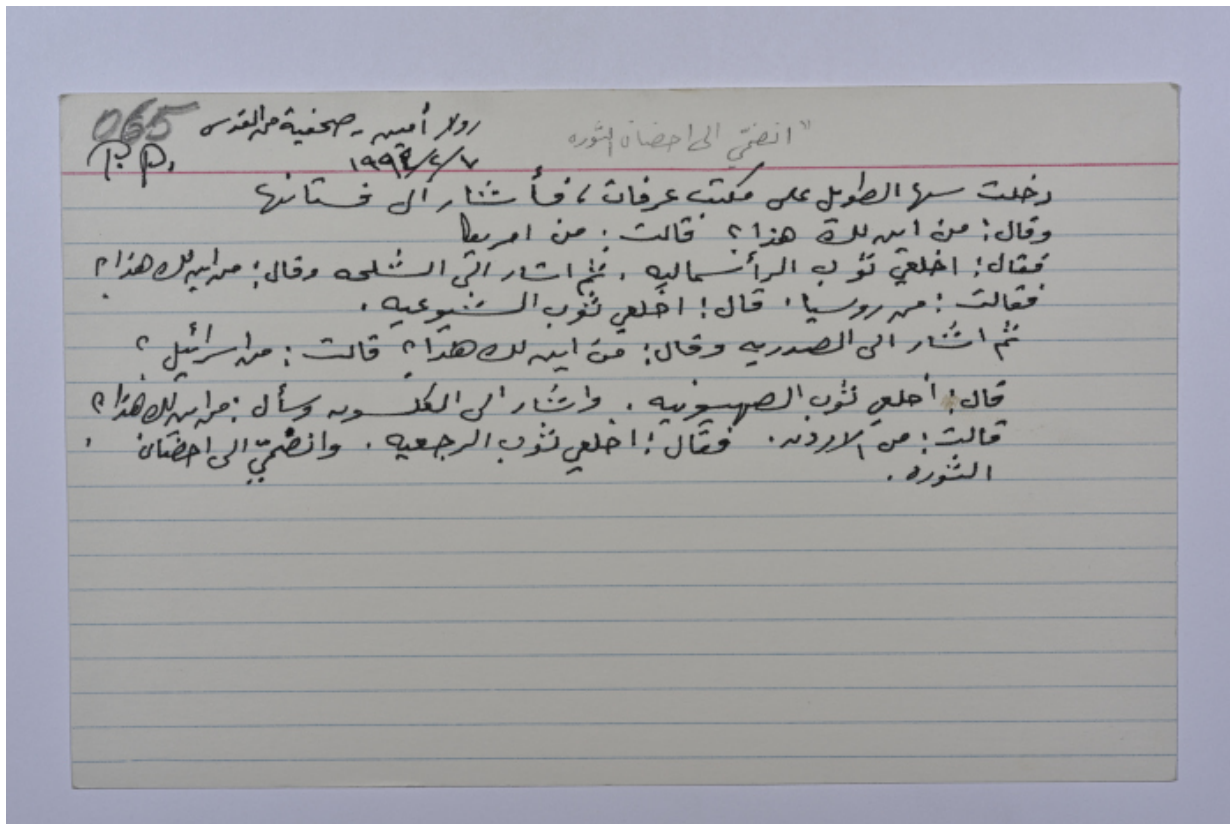 "انضمّي الى احضان الثوره
رولا أمين - صحفية من القدس
065
P.P.
دخلت سها الطويل على مكتب عرفات، فأشار الى فستانها
وقال: من اين لك هذا؟ قالت: من امريكا
فقال: اخلعي ثوب الرأسماليه. ثم اشار الى الشلحه وقال: من اين لك هذا؟
فقالت: من روسيا. قال: اخلعي ثوب الشيوعيه.
ثم اشار الى الصدريه وقال: من اين لك هذا؟ قالت: من اسرائيل؟
قال: أخلعي ثوب الصهيونيه. واشار الى الكلسون وسأل: من اين لك هذا؟
قالت: من الاردن. فقال: اخلعي ثوب الرجعيه. وانضمّي الى احضان
الثوره.